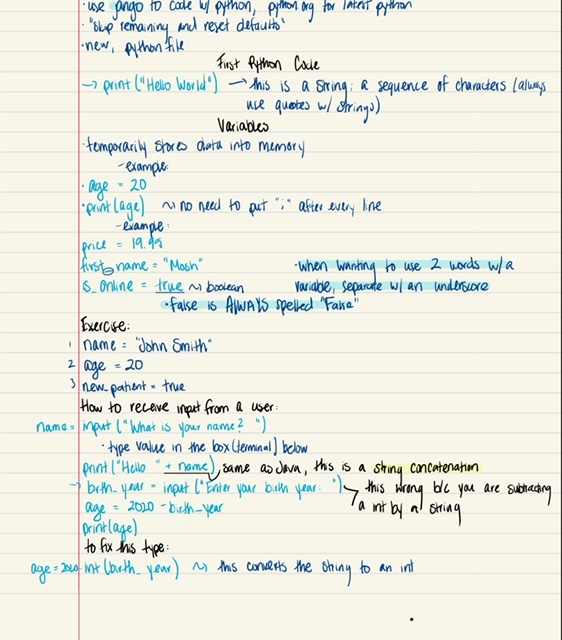 · use jango to code w/ python, python.org for latest python
· "skip remaining and reset defaults"
· new, python file
First Python Code
→ print ("Hello World") → this is a string: a sequence of characters (always
use quotes w/ strings)
Variables
· temporarily stores data into memory
- example:
· age = 20
· print(age) ~ no need to put ";" after every line
- example:
price = 19.95
first_name = "Mosh" · when wanting to use 2 words w/ a
is_online = true ~ boolean variable, separate w/ an underscore
· false is ALWAYS spelled "False"
Exercise:
1 name = "John Smith"
2 age = 20
3 new_patient = true
How to receive input from a user:
name = input ("What is your name? ")
· type value in the box (terminal) below
print ("Hello " + name) same as Java, this is a string concatenation
→ birth_year = input ("Enter your birth year: ") this wrong b/c you are subtracting
age = 2020 - birth_year a int by a string
print(age)
to fix this type:
age = 2020 - int (birth_year) ~ this converts the string to an int